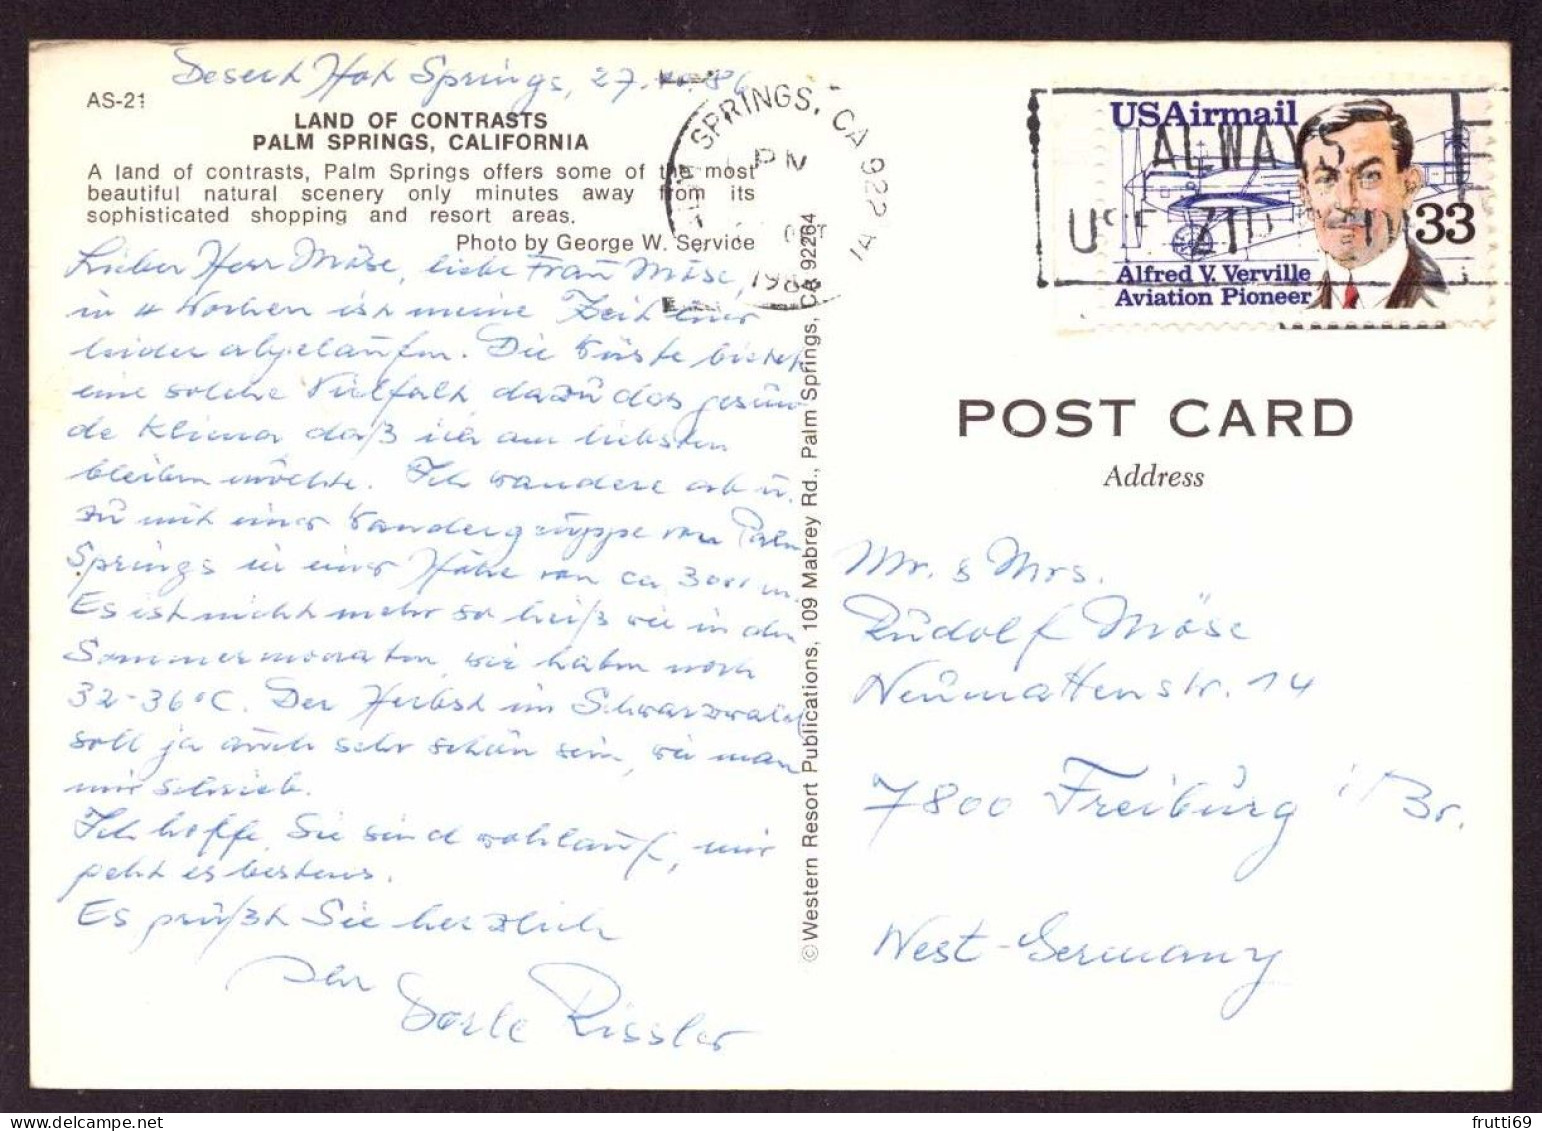 Desert Hot Springs, 27.10.86
AS-21
LAND OF CONTRASTS
PALM SPRINGS, CALIFORNIA
A land of contrasts, Palm Springs offers some of the most
beautiful natural scenery only minutes away from its
sophisticated shopping and resort areas.
Photo by George W. Service
Lieber Herr Möse, liebe Frau Möse,
in 4 Wochen ist meine Zeit hier
leider abgelaufen. Die Wüste bietet
eine solche Vielfalt dazu das gesun-
de Klima daß ich am liebsten
bleiben möchte. Ich wandere ab u.
zu mit einer Wandergruppe von Palm
Springs in einer Höhe von ca 3000 m.
Es ist nicht mehr so heiß wie in den
Sommermonaten, wir haben noch
32-36°C. Der Herbst im Schwarzwald
soll ja auch sehr schön sein, wie man
mir schrieb.
Ich hoffe, Sie sind wohlauf, mir
geht es bestens.
Es grüßt Sie herzlich
Ihre
Dorle Rissler
©Western Resort Publications, 109 Mabrey Rd., Palm Springs, CA 92264
SPRINGS, CA 922
PM
OCT
198
USAirmail
ALWAYS
USE ZIP
33
Alfred V. Verville
Aviation Pioneer
POST CARD
Address
Mr. & Mrs.
Rudolf Möse
Neumattenstr. 14
7800 Freiburg i/Br.
West-Germany
frutti69